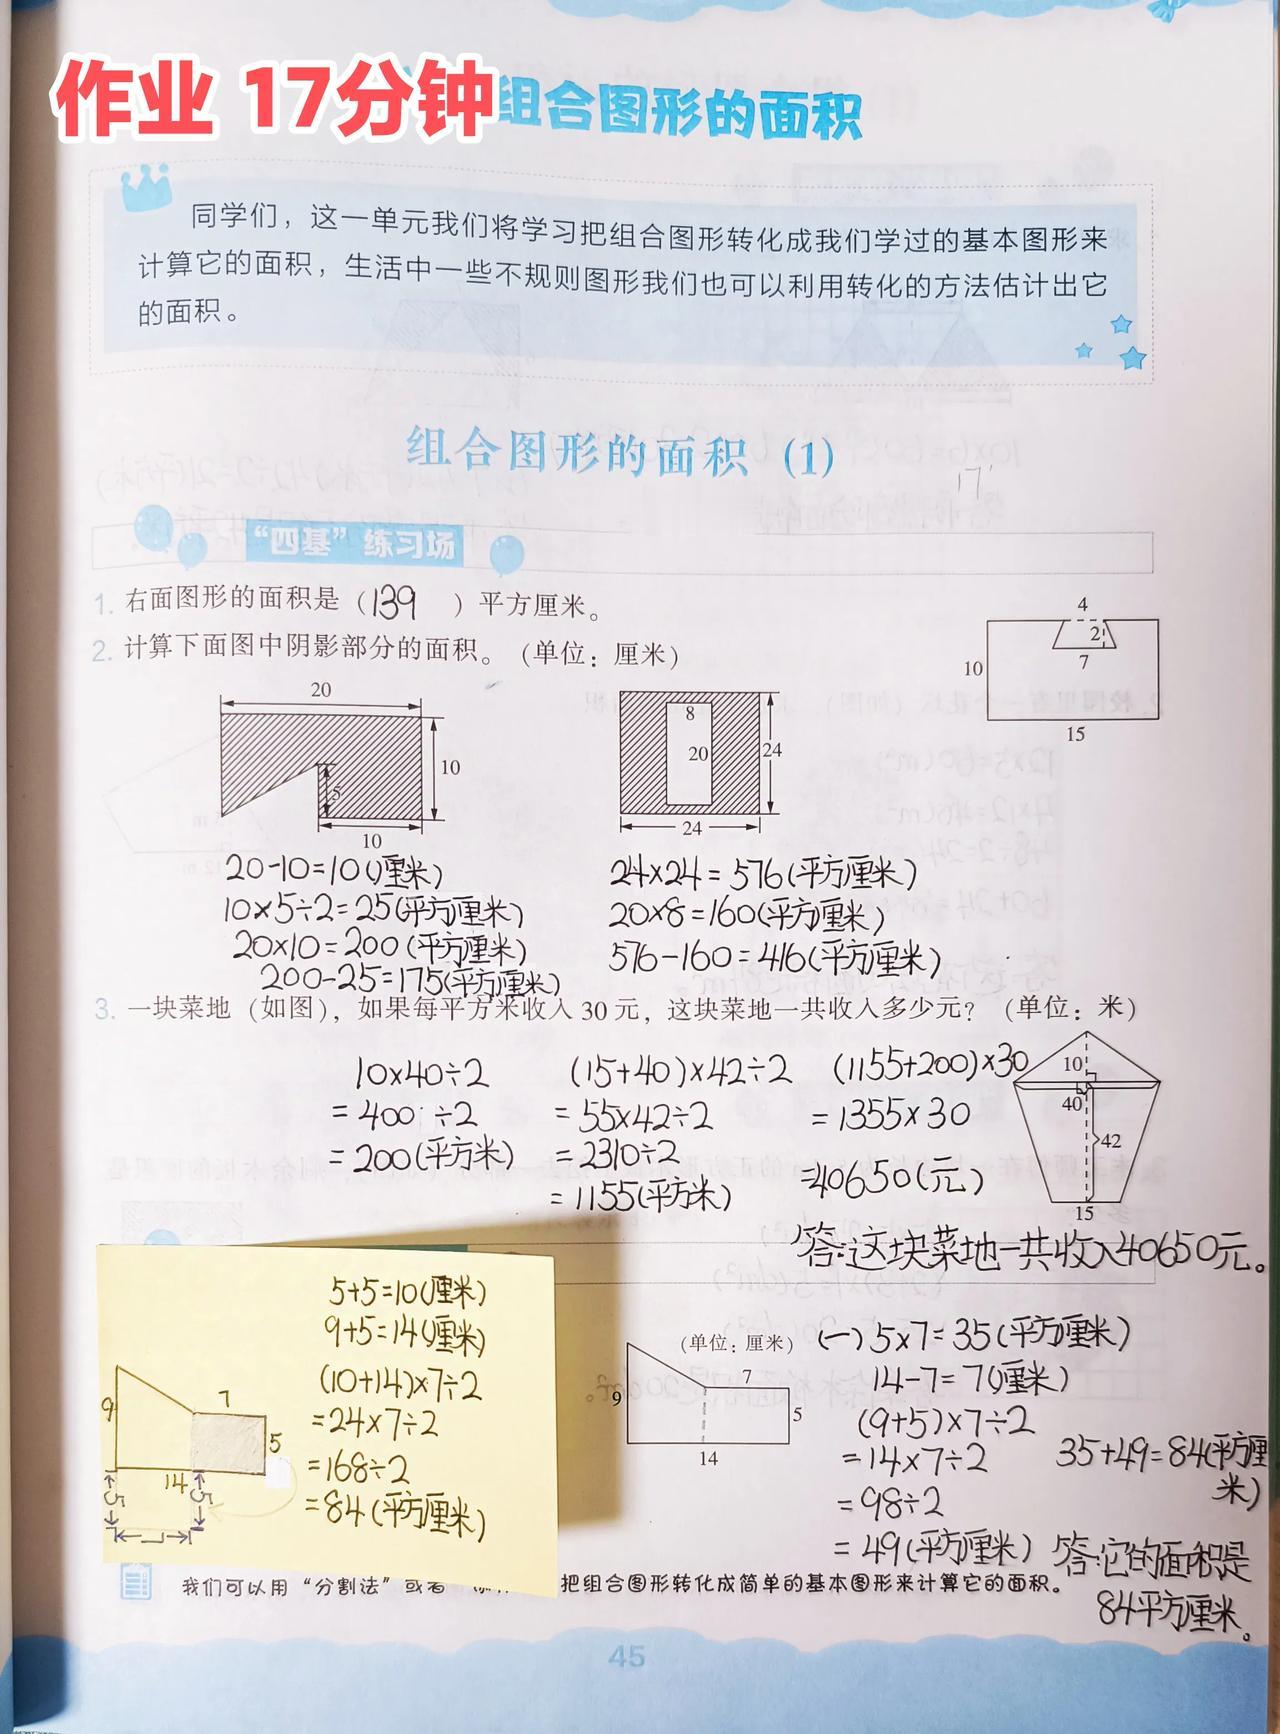 作业 17分钟
组合图形的面积
同学们，这一单元我们将学习把组合图形转化成我们学过的基本图形来
计算它的面积，生活中一些不规则图形我们也可以利用转化的方法估计出它
的面积。
组合图形的面积（1）
17'
“四基”练习场
1. 右面图形的面积是（139）平方厘米。
4
2
7
10
15
2. 计算下面图中阴影部分的面积。（单位：厘米）
20
10
5
10
8
20
24
24
20-10=10(厘米)
10×5÷2=25(平方厘米)
20×10=200(平方厘米)
200-25=175(平方厘米)
24×24=576(平方厘米)
20×8=160(平方厘米)
576-160=416(平方厘米)
3. 一块菜地（如图），如果每平方米收入30元，这块菜地一共收入多少元？（单位：米）
10×40÷2
=400÷2
=200(平方米)
(15+40)×42÷2
=55×42÷2
=2310÷2
=1155(平方米)
(1155+200)×30
=1355×30
=40650(元)
10
40
42
15
答:这块菜地一共收入40650元。
5+5=10(厘米)
9+5=14(厘米)
(10+14)×7÷2
=24×7÷2
=168÷2
=84(平方厘米)
9
7
5
14
5
5
7
(单位：厘米)
9
7
5
14
(一) 5×7=35(平方厘米)
14-7=7(厘米)
(9+5)×7÷2
=14×7÷2
=98÷2
=49(平方厘米)
35+49=84(平方厘
米)
答:它的面积是
84平方厘米。
我们可以用“分割法”或者
把组合图形转化成简单的基本图形来计算它的面积。
45